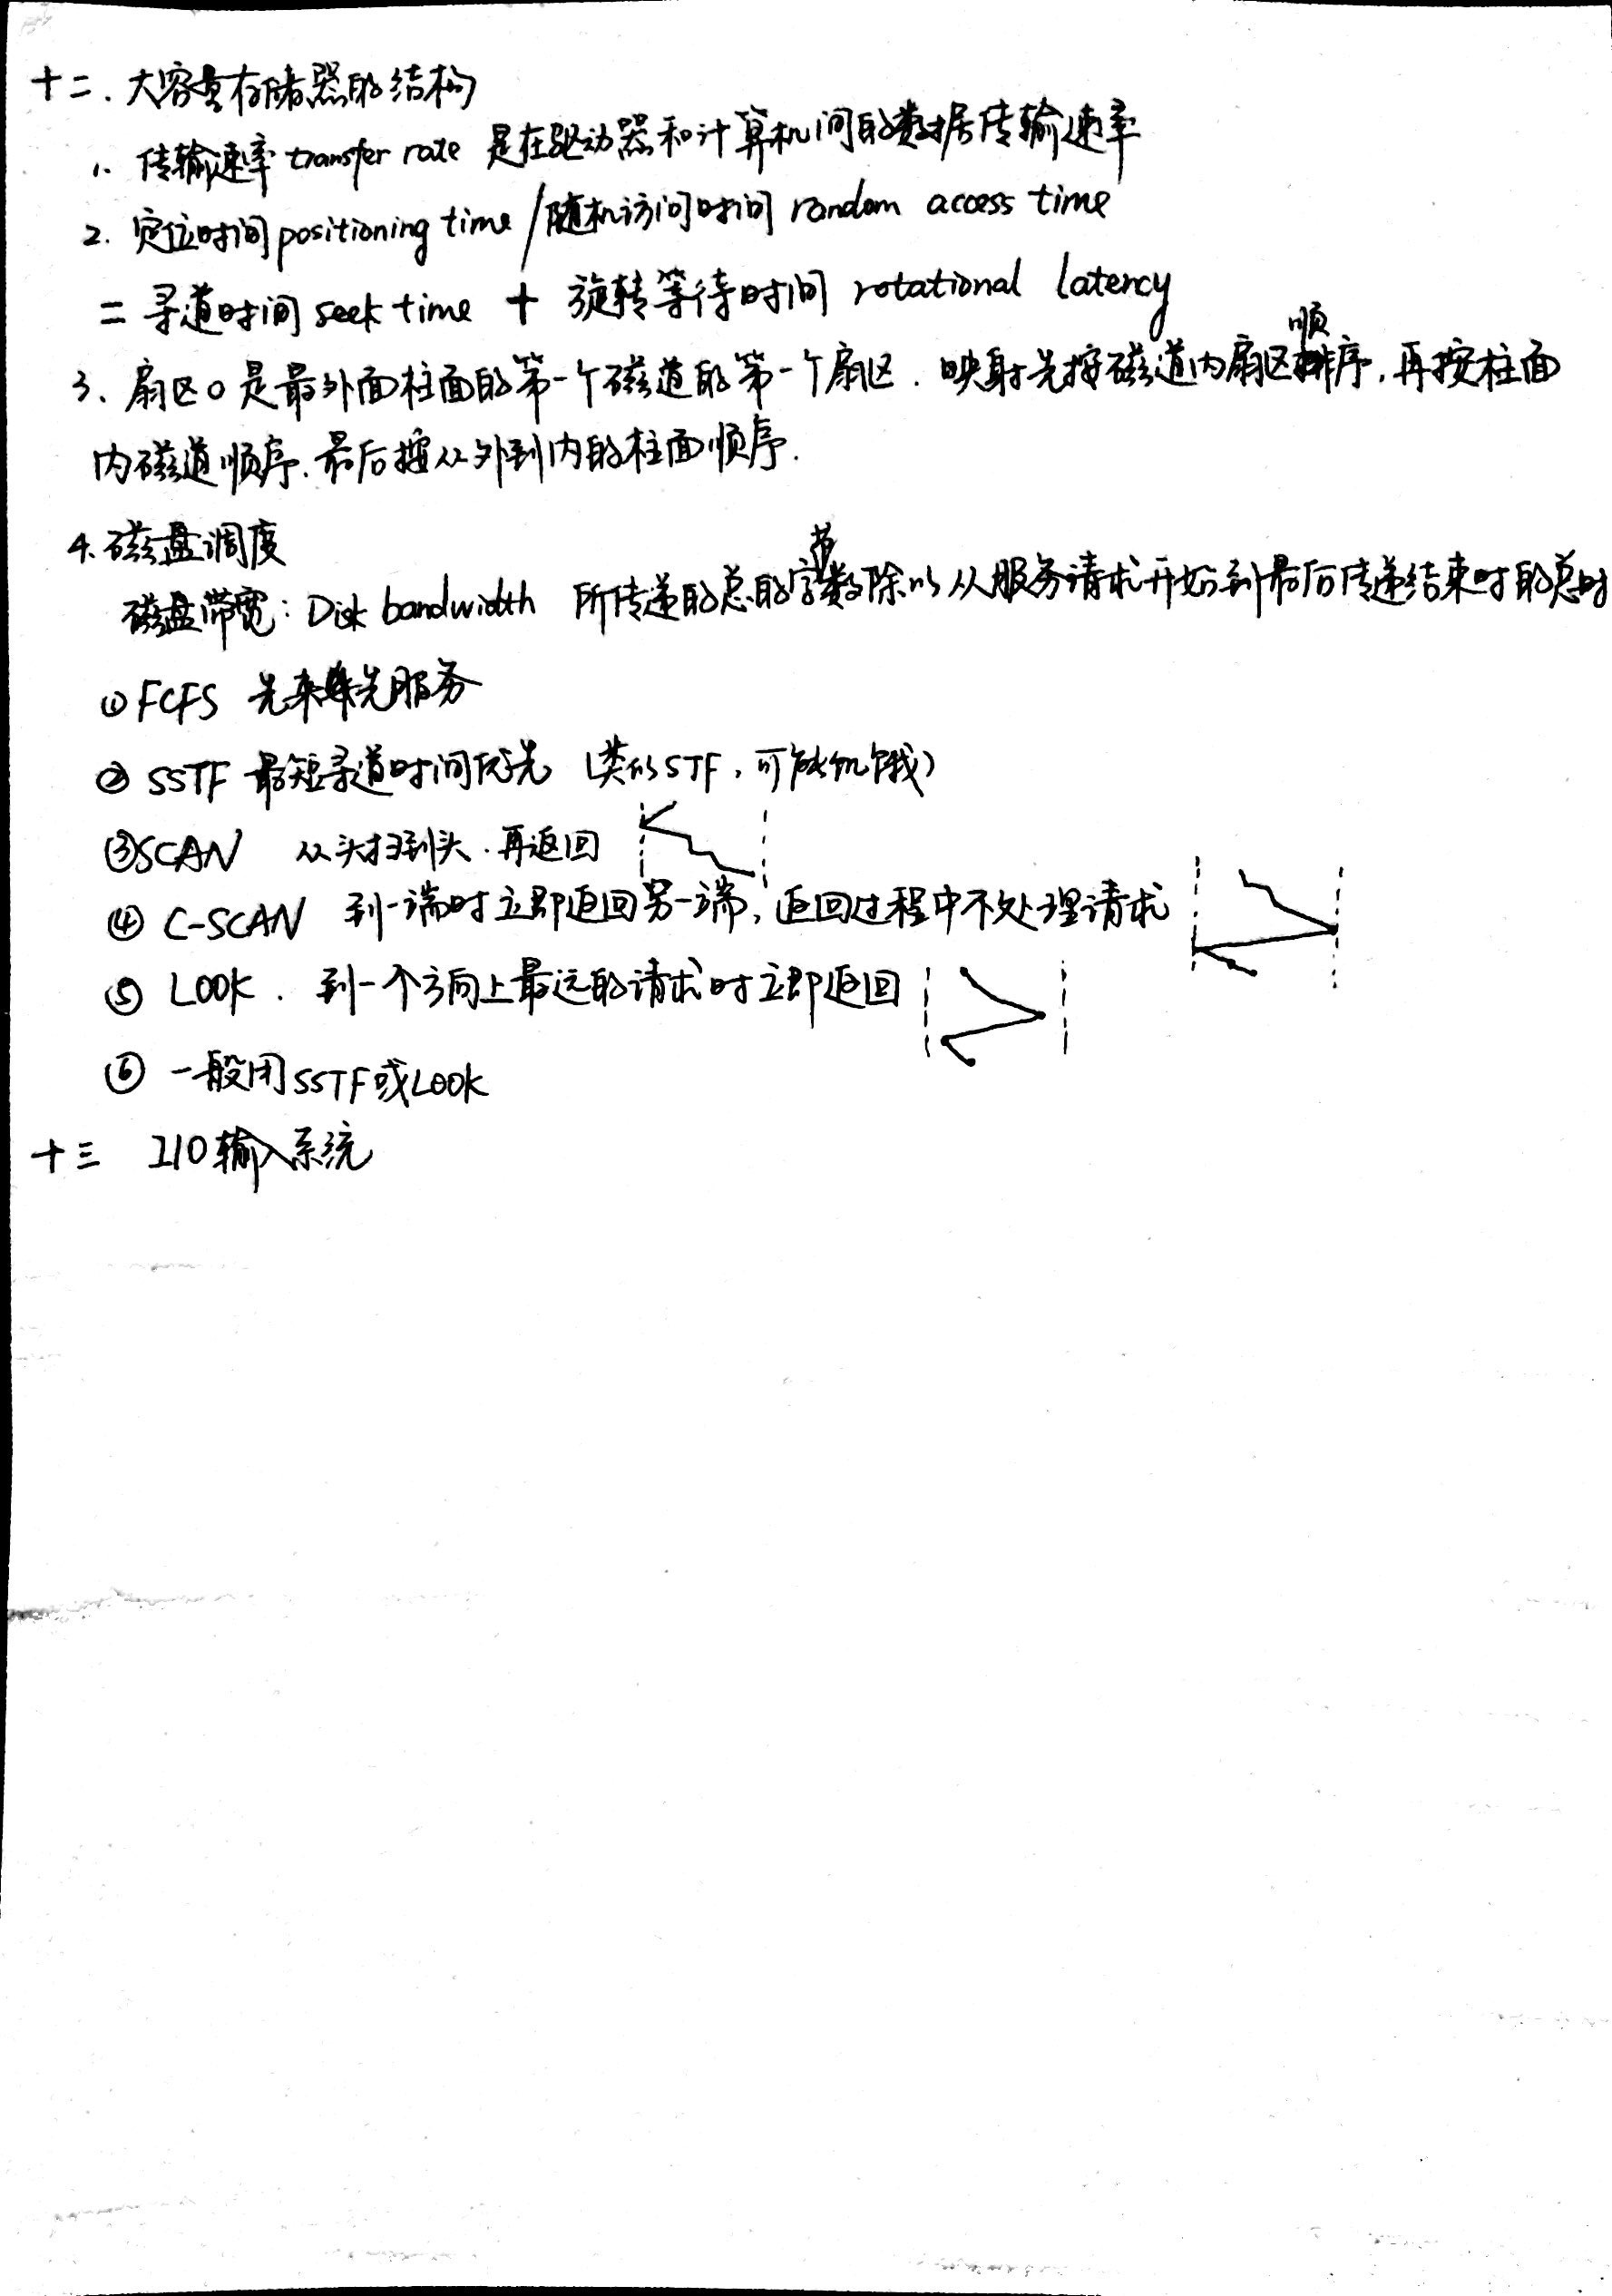 十二. 大容量存储器的结构
1. 传输速率 transfer rate 是在驱动器和计算机间的数据传输速率
2. 定位时间 positioning time / 随机访问时间 random access time
= 寻道时间 seek time + 旋转等待时间 rotational latency
3. 扇区0是最外面柱面的第一个磁道的第一个扇区. 映射先按磁道内扇区顺序, 再按柱面
内磁道顺序. 最后按从外到内的柱面顺序.
4. 磁盘调度
磁盘带宽: Disk bandwidth 所传递的总的字节数除以从服务请求开始到最后传递结束时的总时
① FCFS 先来先服务
② SSTF 最短寻道时间优先 (类似STF, 可能饥饿)
③ SCAN 从头扫到头. 再返回
④ C-SCAN 到一端时立即返回另一端, 返回过程中不处理请求
⑤ LOOK. 到一个方向上最远的请求时立即返回
⑥ 一般用SSTF或LOOK
十三 I/O输入系统